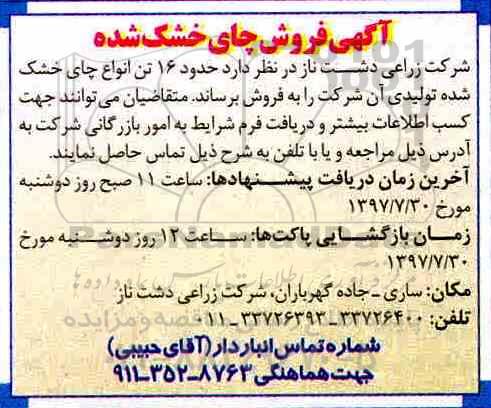 آگهی فروش چای خشک شده
شرکت زراعی دشت ناز در نظر دارد حدود ۱۶ تن انواع چای خشک
شده تولیدی آن شرکت را به فروش برساند. متقاضیان می توانند جهت
کسب اطلاعات بیشتر و دریافت فرم شرایط به امور بازرگانی شرکت به
آدرس ذیل مراجعه و یا با تلفن به شرح ذیل تماس حاصل نمایند.
آخرین زمان دریافت پیشنهادها: ساعت ۱۱ صبح روز دوشنبه
مورخ ۱۳۹۷/۷/۳۰
زمان بازگشایی پاکت‌ها: ساعت ۱۲ روز دوشنبه مورخ
۱۳۹۷/۷/۳۰
مکان: ساری - جاده گهرباران، شرکت زراعی دشت ناز
تلفن: ۳۳۷۲۶۴۰۰ - ۳۳۷۲۶۳۹۳ - ۰۱۱
شماره تماس انباردار (آقای حبیبی)
جهت هماهنگی ۸۷۶۳-۳۵۲-۹۱۱